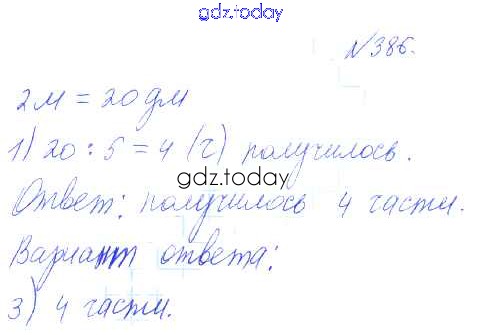 gdz.today
№386.
2м = 20дм
1) 20 : 5 = 4 (ч) получилось.
gdz.today
Ответ: получилось 4 части.
Вариант ответа:
3) 4 части.